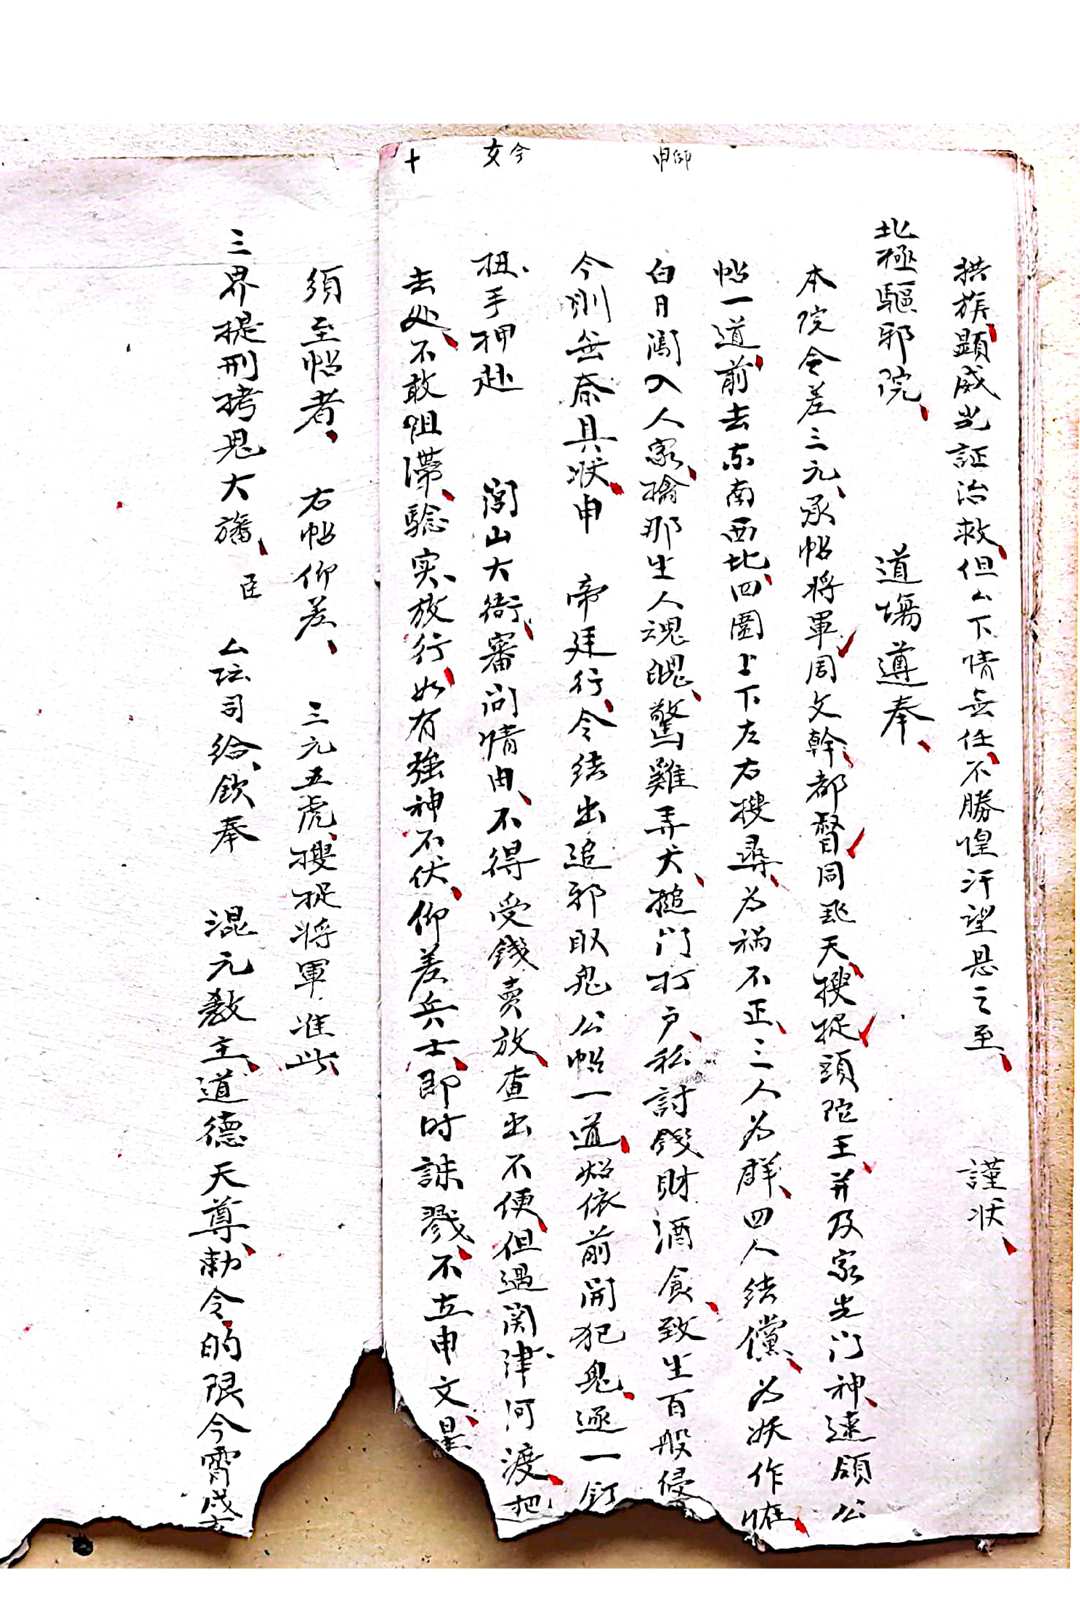 拱旌顕威光証治救但厶下情無任不勝惶汗望恩之至 謹状
北極驅邪院 道塲遵奉
本院令差三元承帖将軍周文幹都督同飛天搜捉頭陀王并及家先门神速領公
帖一道前去东南西北四圍上下左右搜尋為禍不正三人为群四人结儻为妖作
白日闖入人家擒那生人魂魄驚雞弄犬搥门打户私討錢財酒食致生百般侵
今則無奈具状申 帝廷行令结出追邪取鬼公帖一道炤依前開犯鬼逐一釘
扭手押赴 閭山大衙審问情由不得受錢卖放查出不便但過関津河渡把
去処不敢阻滯騐实放行如有強神不伏仰差兵士即时誅戮不立申文
須至帖者 右帖仰差 三元五虎搜捉将軍准此
三界提刑拷鬼大旛 臣 厶坛司给欽奉 混元教主道德天尊勅令的限今霄
仰
申
今
文
十